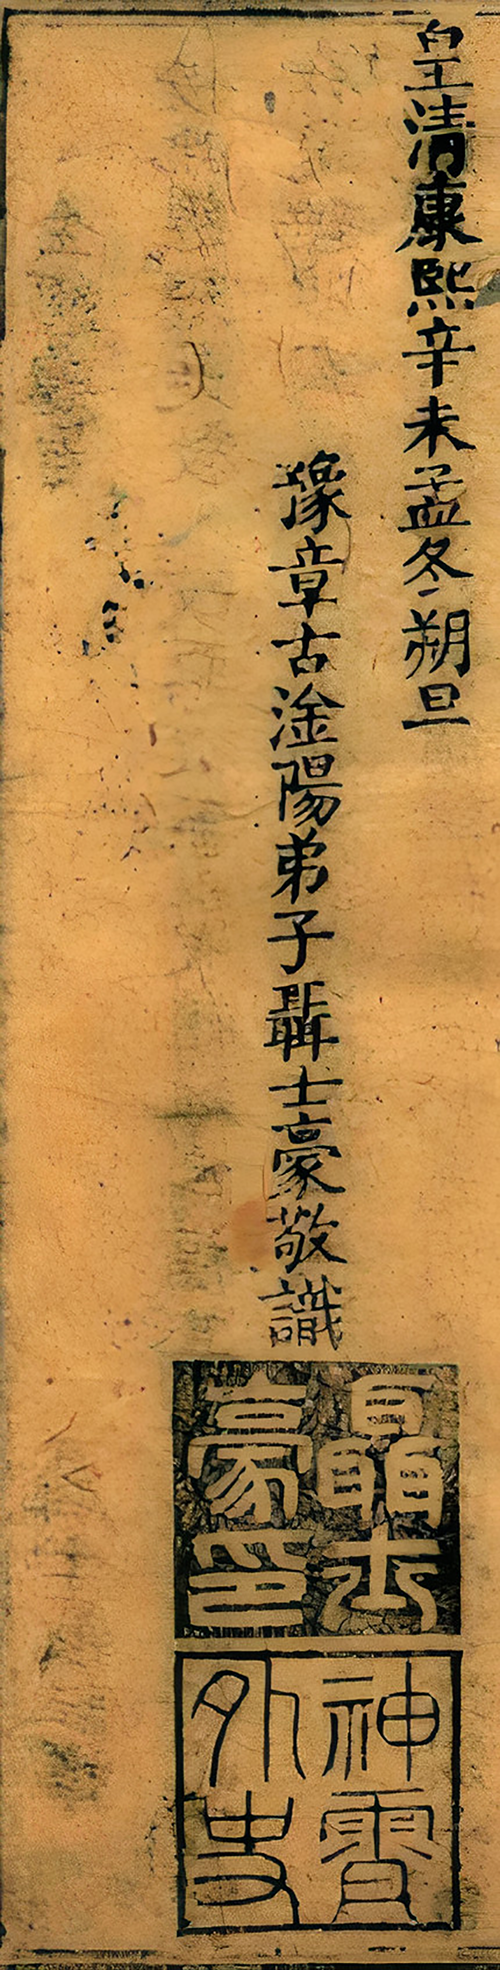 皇清康熙辛未孟冬朔旦
豫章古淦陽弟子聶士豪敬識
聶士豪印
神霄外史